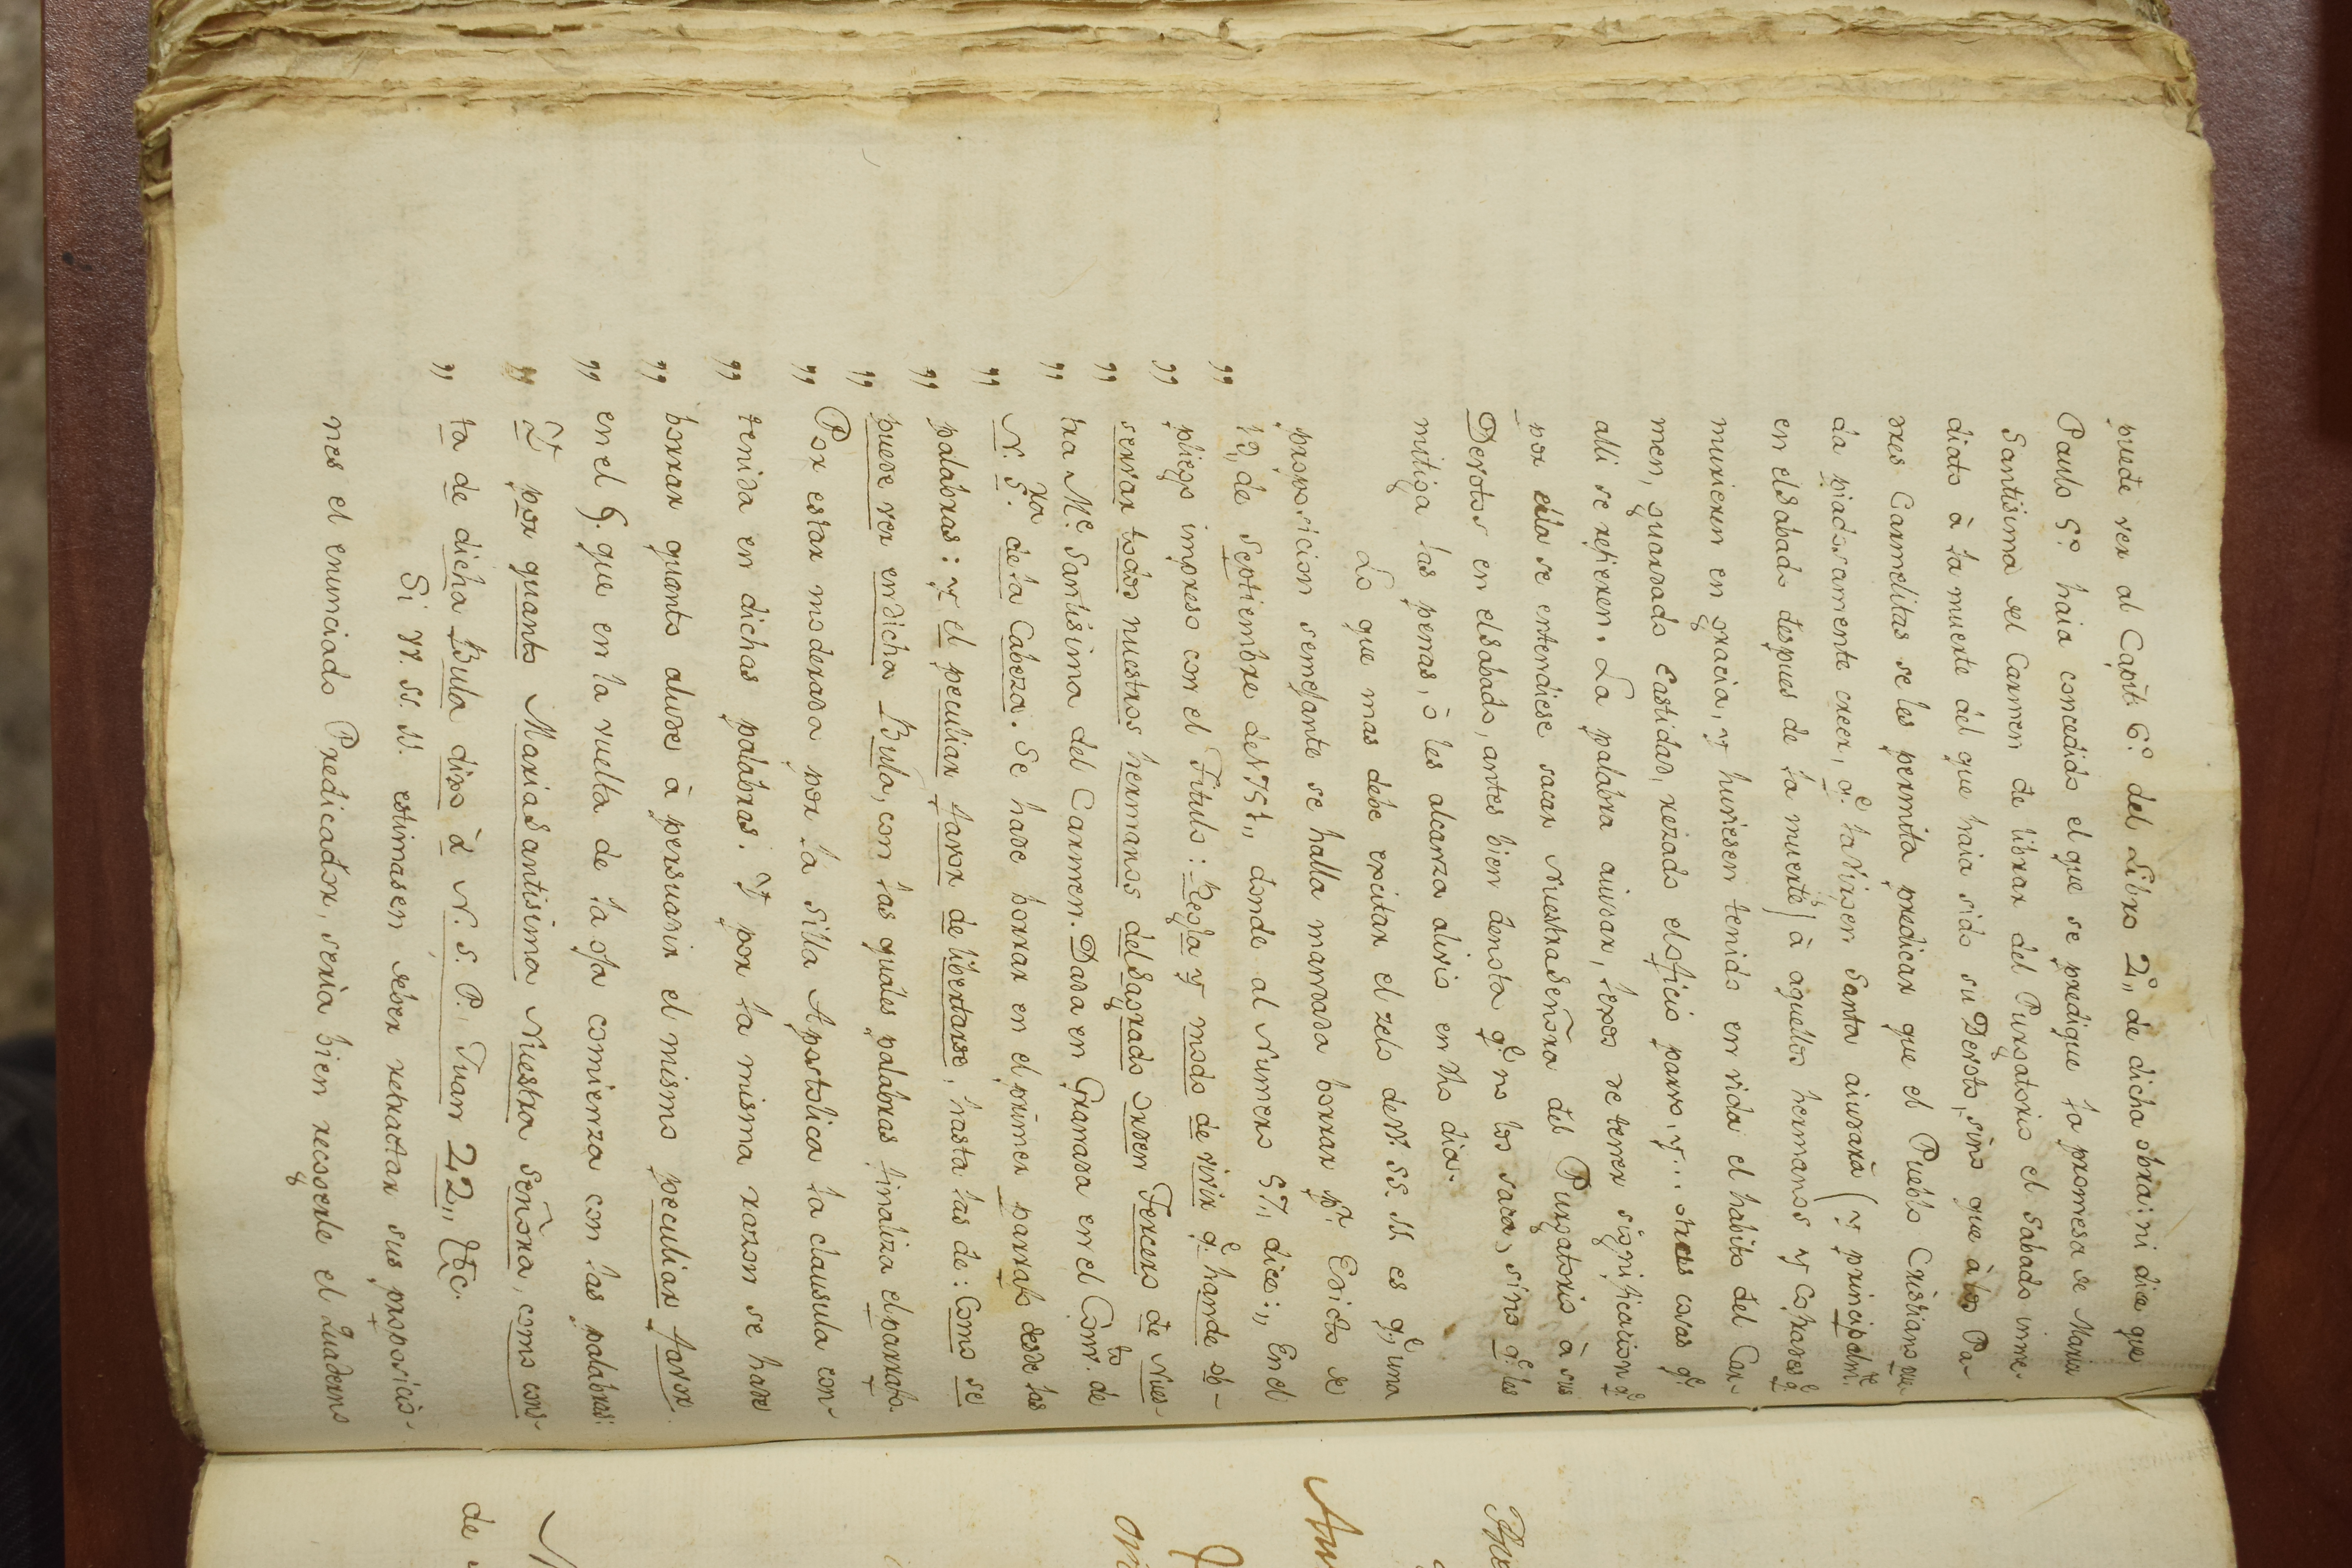 puede ver al Capit. 6º del Libro 2º,, de dicha obra: ni dice que
Paulo 5º haia concedido el que se predique la promesa de Maria
Santisima del Carmen de librar del Purgatorio el Sabado inme-
diato à la muerte del que haia sido su Devoto, sino que à los Pa-
dres Carmelitas se les permita predicar que el Pueblo Cristiano pue-
da piadosamente creer, q.e la Virgen Santa aiudarà (y principalm.te
en el Sabado despues de la muerte) à aquellos hermanos y Cofrades q.e
murieren en gracia, y huviesen tenido en vida el habito del Car-
men, guardado Castidad, rezado el oficio parvo, y... otras cosas q.e
alli se refieren. La palabra aiudar, lexos de tener significacion q.e
por ella se entendiese sacar Nuestra Señora del Purgatorio à sus
Devotos en el Sabado, antes bien denota q.e no los saca, sino q.e les
mitiga las penas, ò les alcanza alivio en dho dia.
Lo que mas debe excitar el zelo de VV. SS. Ill. es q.e una
proposicion semejante se halla mandada borrar p.r Edicto de
13,, de Septiembre de 1757,, donde al Numero 57,, dice: ,, En el
,, pliego impreso con el Titulo: Regla y modo de vivir q.e han de ob-
,, servar todos nuestros hermanos del Sagrado orden Tercero de Nues-
,, tra M.e Santisima del Carmen. Dada en Granada en el Conv.to de
,, N. S.ra de la Cabeza. Se hade borrar en el primer parrafo desde las
,, palabras: y el peculiar favor de libertarse, hasta las de: Como se
,, puede ver en dicha Bula, con las quales palabras finaliza el parrafo.
,, Por estar moderada por la Silla Apostolica la clausula con-
,, tenida en dichas palabras. Y por la misma razon se hade
,, borrar quanto alude à persuadir el mismo peculiar favor.
,, en el §. que en la vuelta de la oja comienza con las palabras:
,, Y por quanto Maria Santisima Nuestra Señora, como cons-
,, ta de dicha Bula dixo à N. S. P. Juan 22,, &c.
Si VV. SS. Ill. estimasen deber retractar sus proposicio-
nes el enunciado Predicador, seria bien recogerle el Quaderno
de